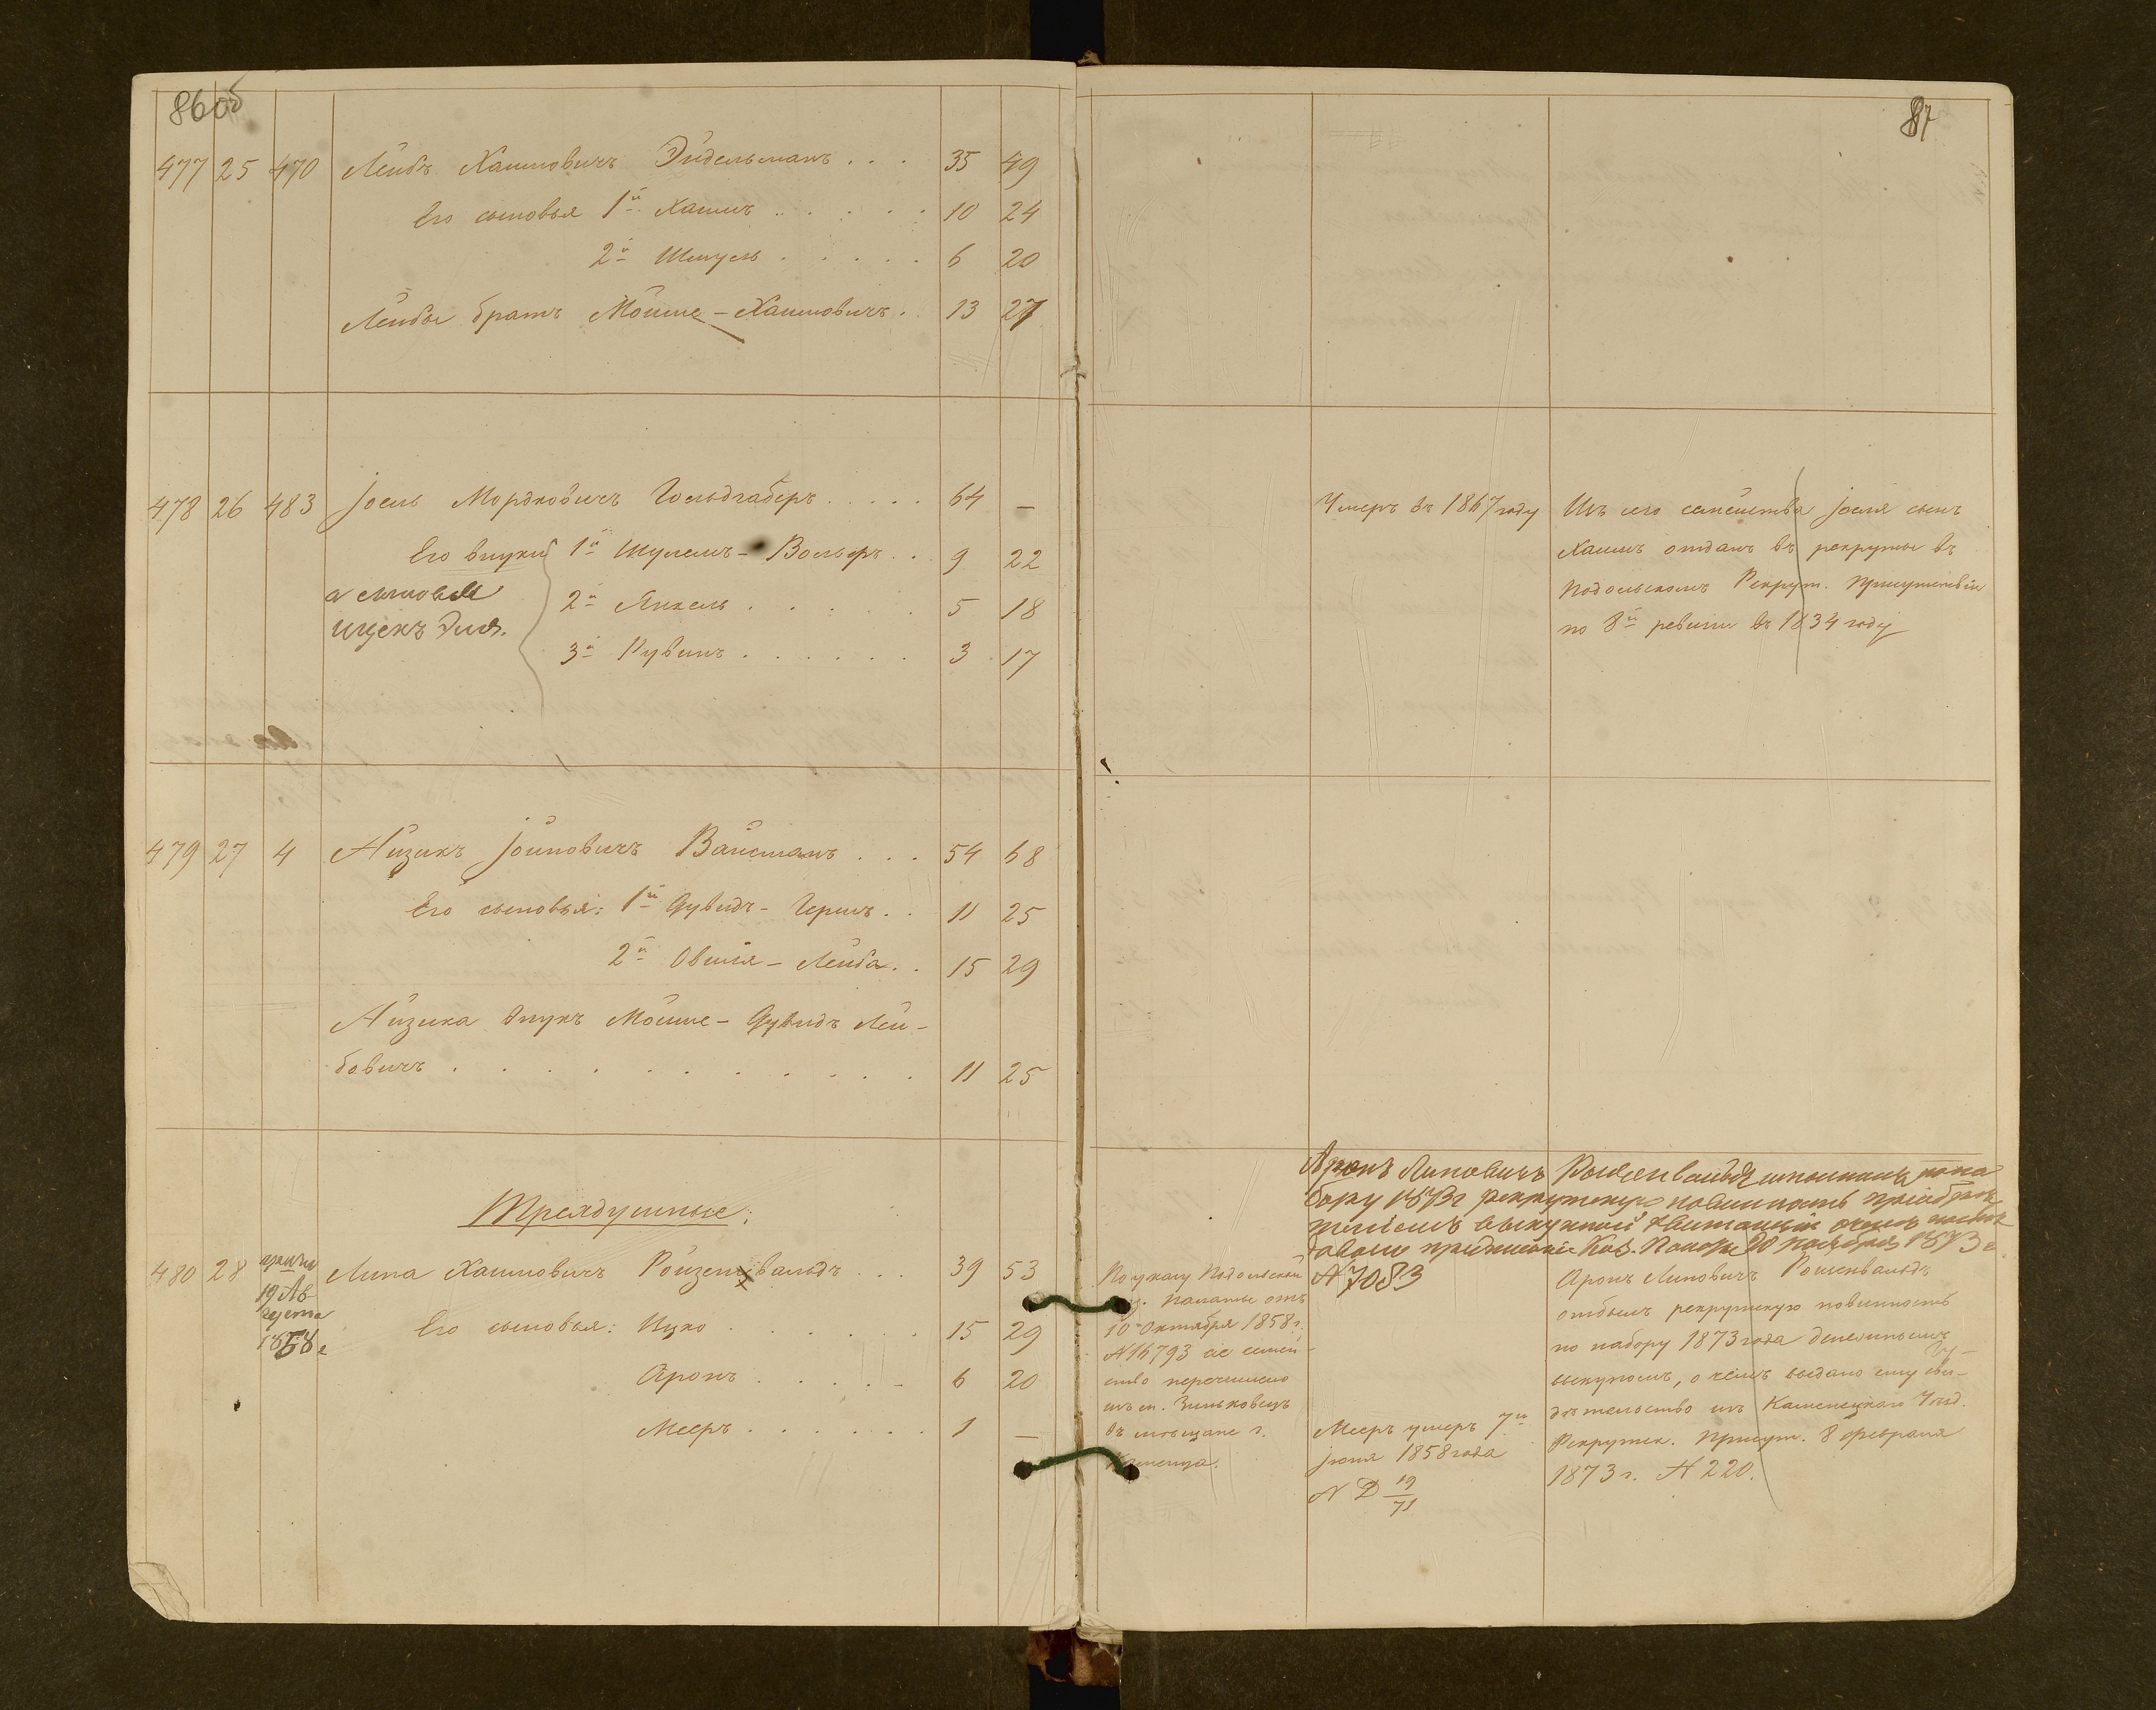 86об
477 25 470 Лейбъ Хаимовичъ Эйдельманъ . . . 35 49
Его сыновья 1й Хаимъ . . . . . 10 24
2й Шмуль . . . . . 6 20
Лейбы братъ Мойше-Хаимовичъ . 13 27
478 26 483 Іоель Мордковичъ Гольдгаберъ . . . . . 64 —
Его внуки 1й Шулемъ-Вольфъ . . 9 22
а сыновья
2й Янкель . . . . . 5 18
Ицекъ Эля.
3й Рувинъ . . . . . . 3 17
479 27 4 Айзикъ Іойновичъ Вайсманъ . . . 54 68
Его сыновья: 1й Дувидъ-Гершъ . . 11 25
2й Овшія-Лейба . . 15 29
Айзика внукъ Мойше-Дувидъ Лей-
бовичъ . . . . . . . . . . . 11 25
Трехдушные:
480 28 Липа Хаимовичъ Ройзенвальдъ . . . 39 53
19 Ав-
густа
1858 г
Его сыновья: Ицко . . . . . . 15 29
Аронъ . . . . . 6 20
Мееръ . . . . . . 1 —
87
Умеръ въ 1867 году
Изъ сего семейства Іоеля сынъ
Хаимъ отданъ въ рекруты въ
Подольскомъ Рекрут. Присутствіи
по 8й ревизіи въ 1834 году
Аронъ Липовичъ Ройзенвальдъ исполнилъ по на
бору 1873 г рекрутскую повинность пріобрѣ
теніемъ выкупной квитанціи о чемъ
предписаніе Каз. Палаты 20 Ноября 1873 г.
№ 7083
По указу Подольской
Палаты отъ
10 Октября 1858 г.
№ 16793 сіе семей-
ство перечислено
изъ м. Зиньковецъ
въ мѣщане г.
Каменца.
Мееръ умеръ 7го
Іюня 1858 года
№ Д 19/71
Аронъ Липовичъ Ройзенвальдъ
отбылъ рекрутскую повинность
по набору 1873 года денежнымъ
выкупомъ, о чемъ выдано ему сви-
дѣтельство изъ Каменецкаго Уѣзд.
Рекрутск. Присут. 8 февраля
1873 г. № 220.